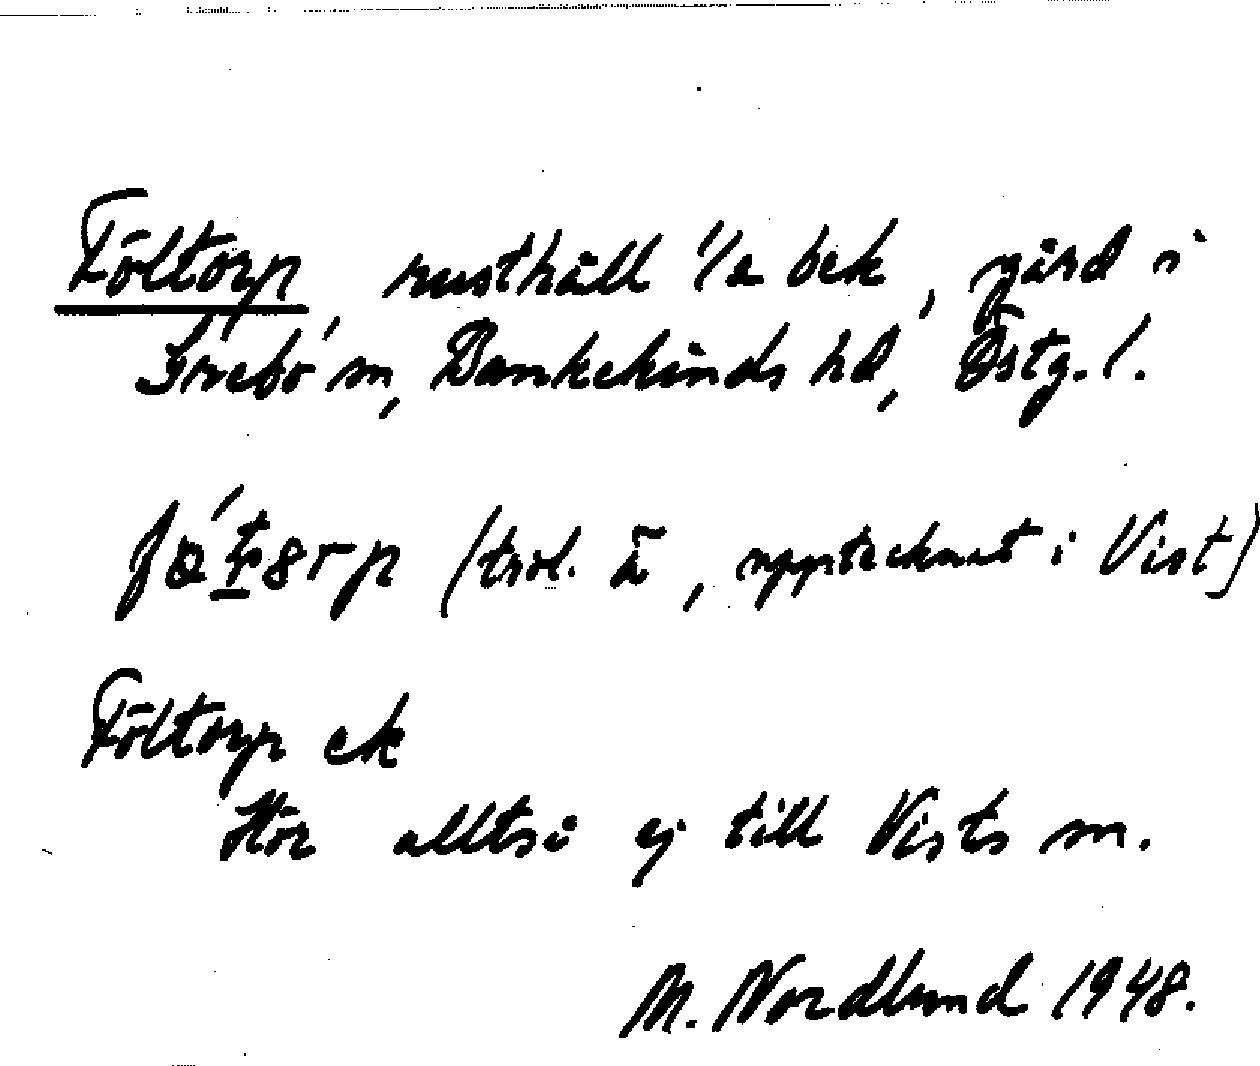 Föltorp, rusthåll 1/2 bek, gård i
Örebo sn, Bankekinds hd, Östg. l.
(trol. ä, upptecknat i Vist)
Föltorp ek
Hör alltså ej till Vists sn.
M. Nordlund 1948.